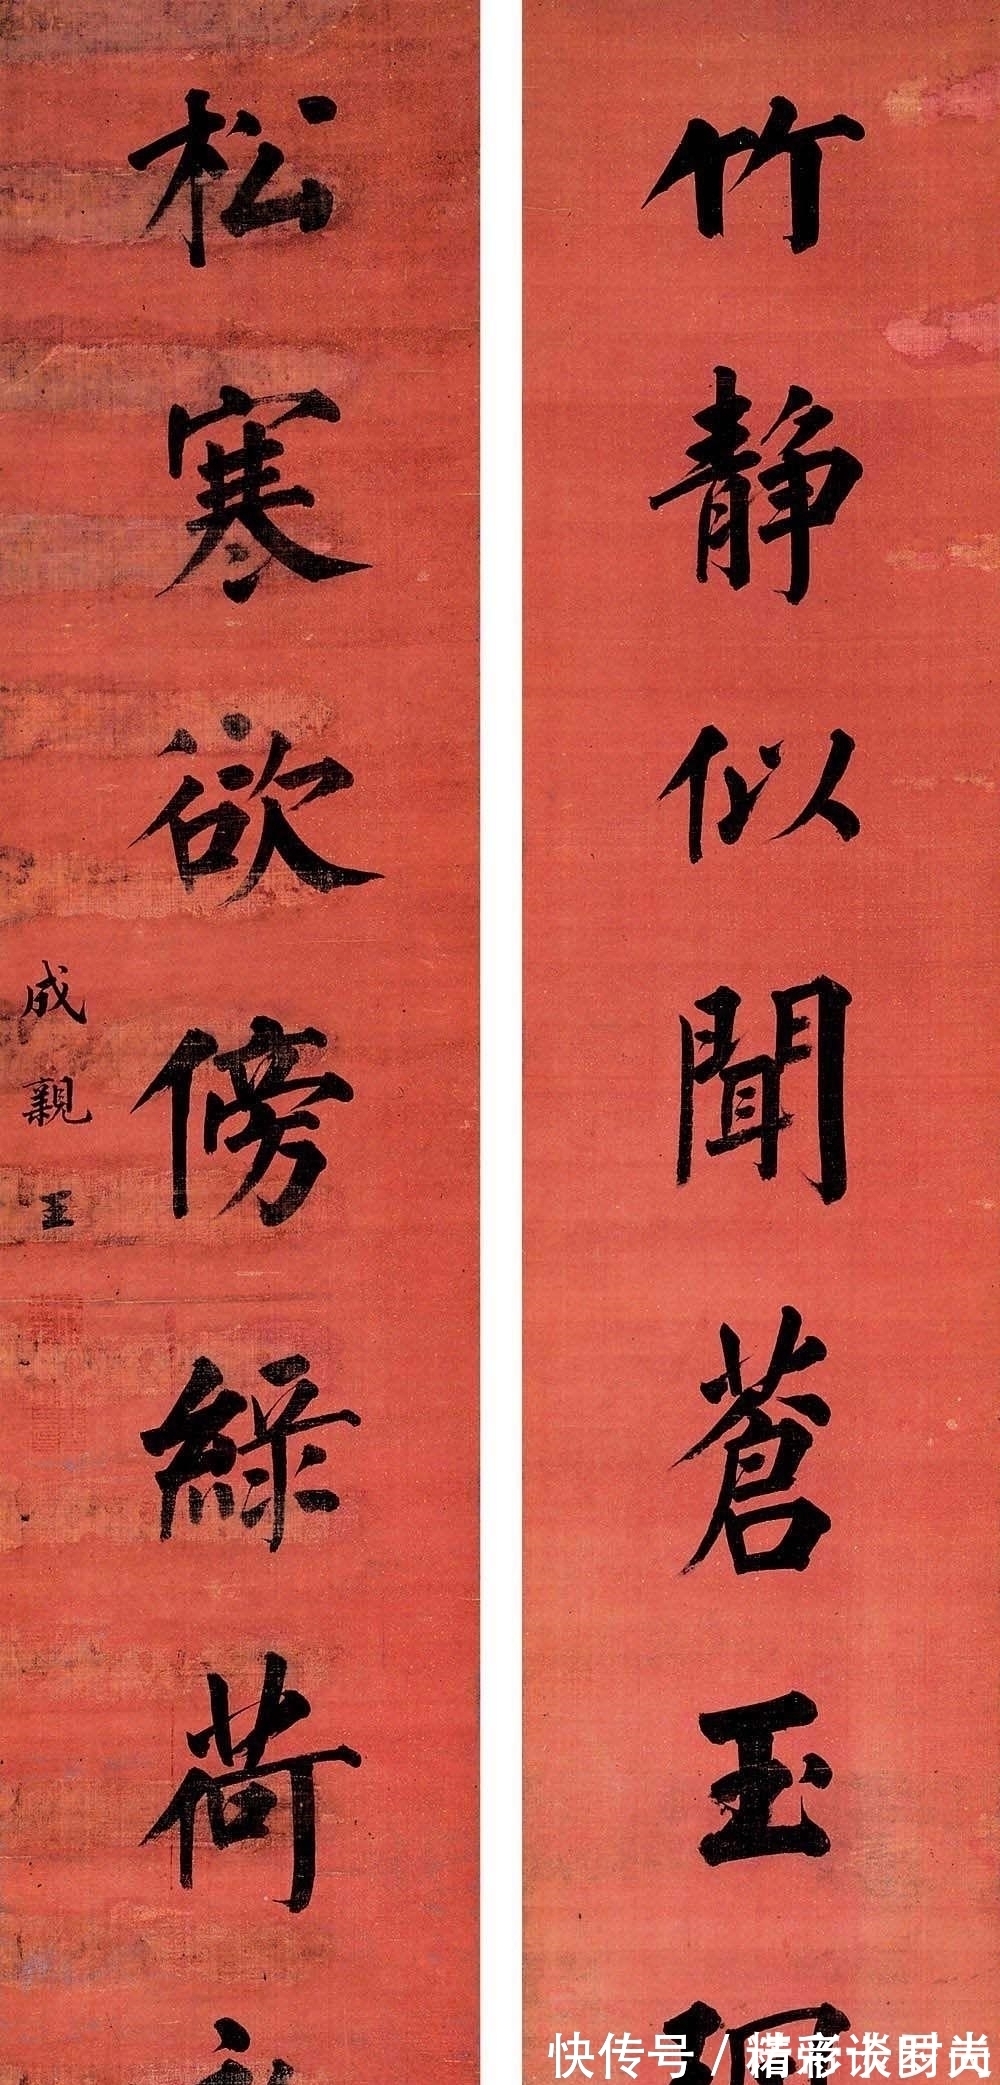 竹静似聞蒼玉
松寒欲傍緑荷
成親王
快传号/精彩谈时尚